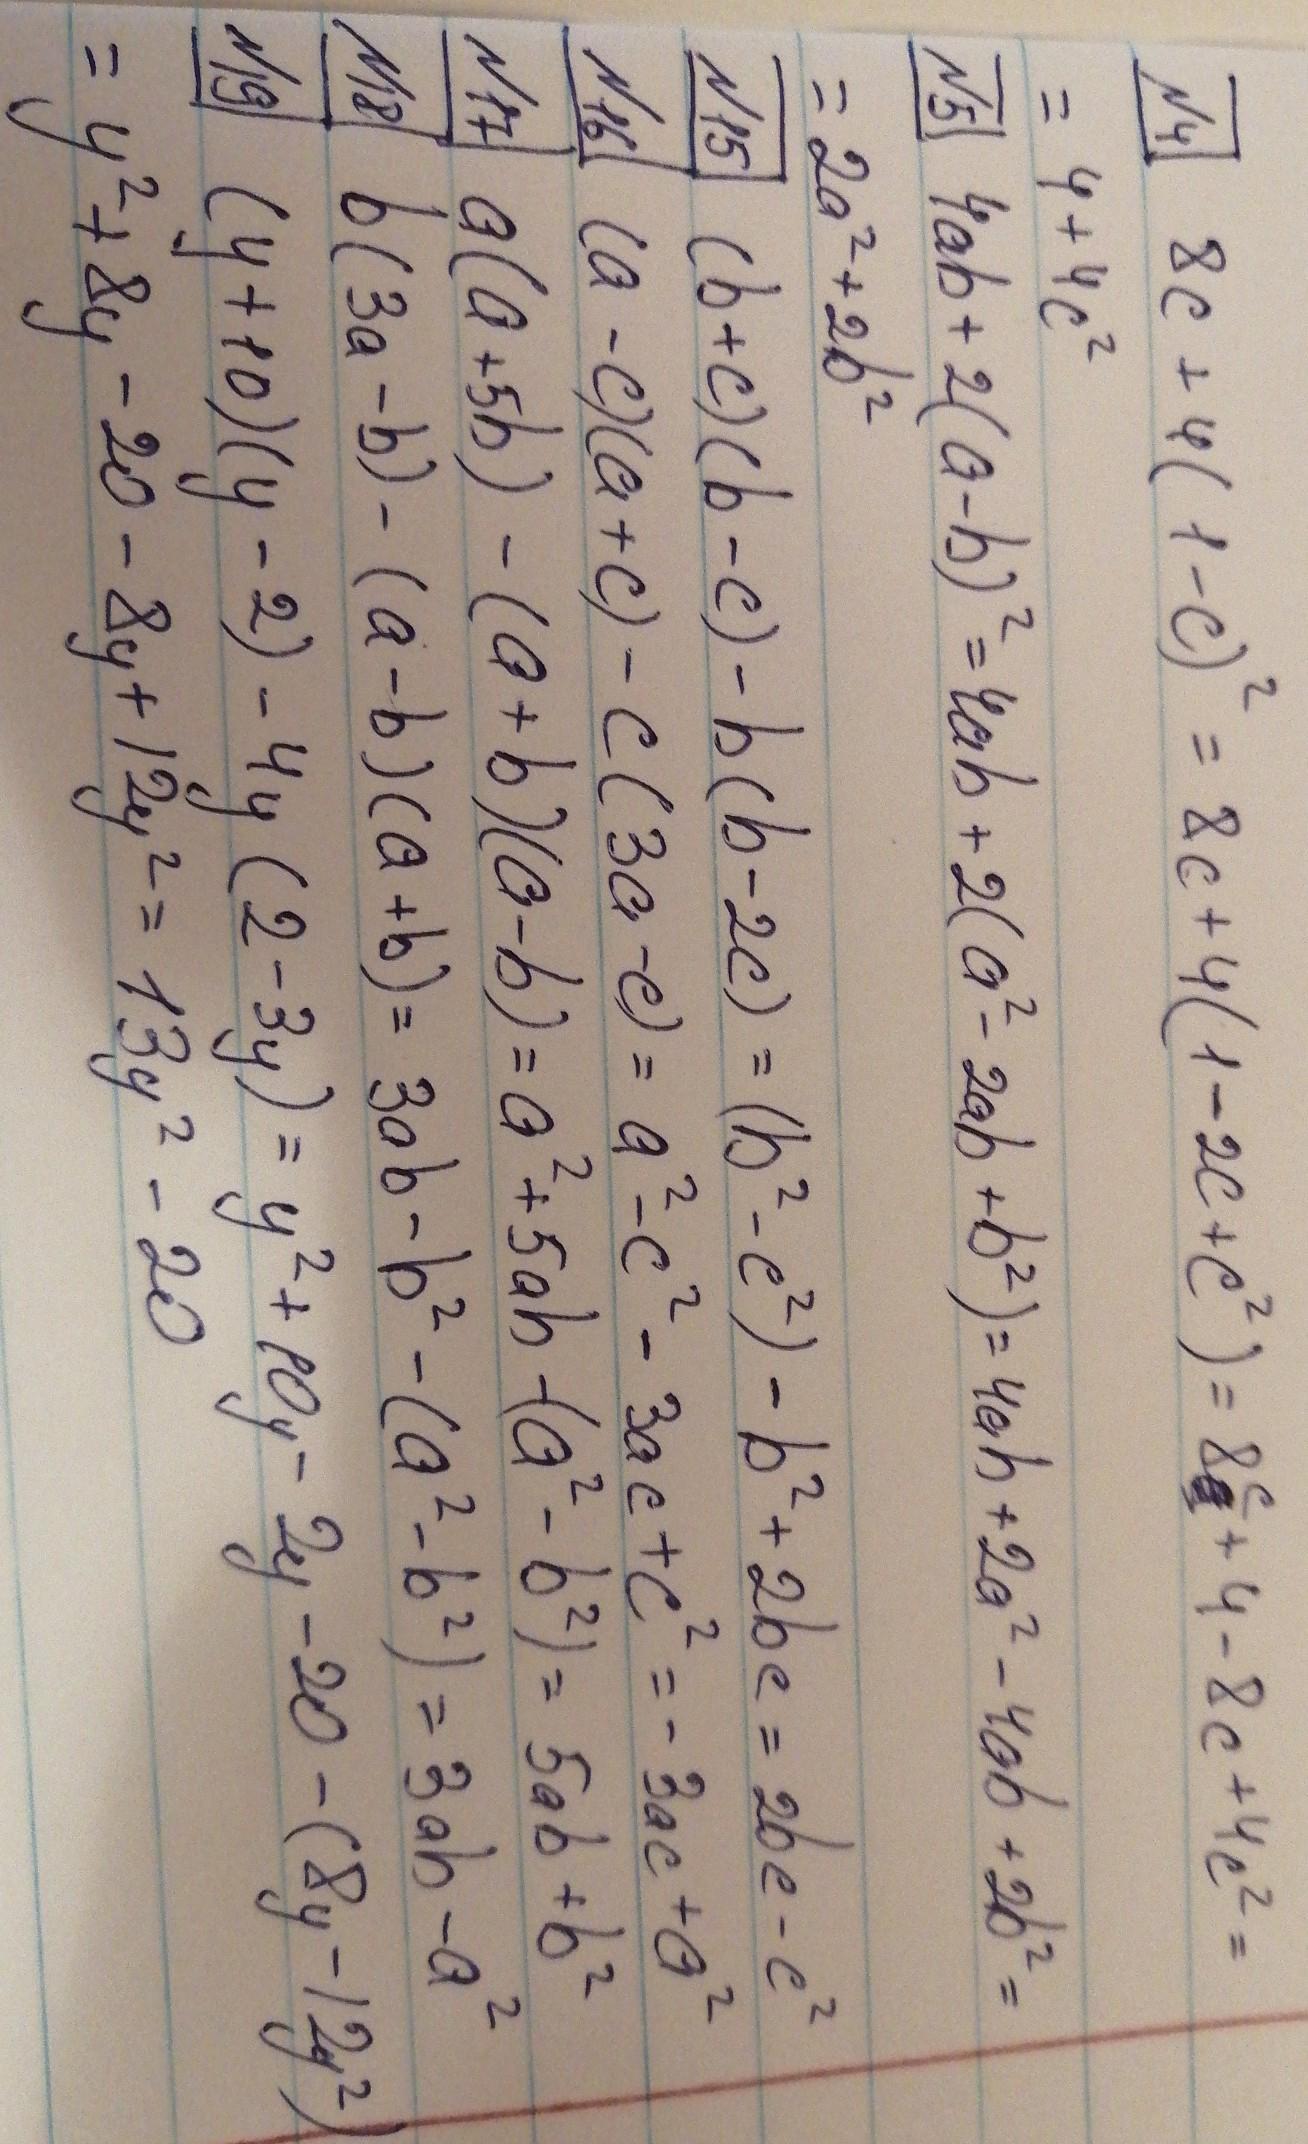 N4 8c + 4(1-c)² = 8c + 4(1-2c+c²) = 8c + 4 - 8c + 4c² =
= 4 + 4c²
N5 4ab + 2(a-b)² = 4ab + 2(a² - 2ab + b²) = 4ab + 2a² - 4ab + 2b² =
= 2a² + 2b²
N15 (b+c)(b-c) - b(b-2c) = (b² - c²) - b² + 2bc = 2bc - c²
N16 (a-c)(a+c) - c(3a-c) = a² - c² - 3ac + c² = -3ac + a²
N17 a(a+5b) - (a+b)(a-b) = a² + 5ab - (a² - b²) = 5ab + b²
N18 b(3a-b) - (a-b)(a+b) = 3ab - b² - (a² - b²) = 3ab - a²
N19 (y+10)(y-2) - 4y(2-3y) = y² + 10y - 2y - 20 - (8y - 12y²)
= y² + 8y - 20 - 8y + 12y² = 13y² - 20